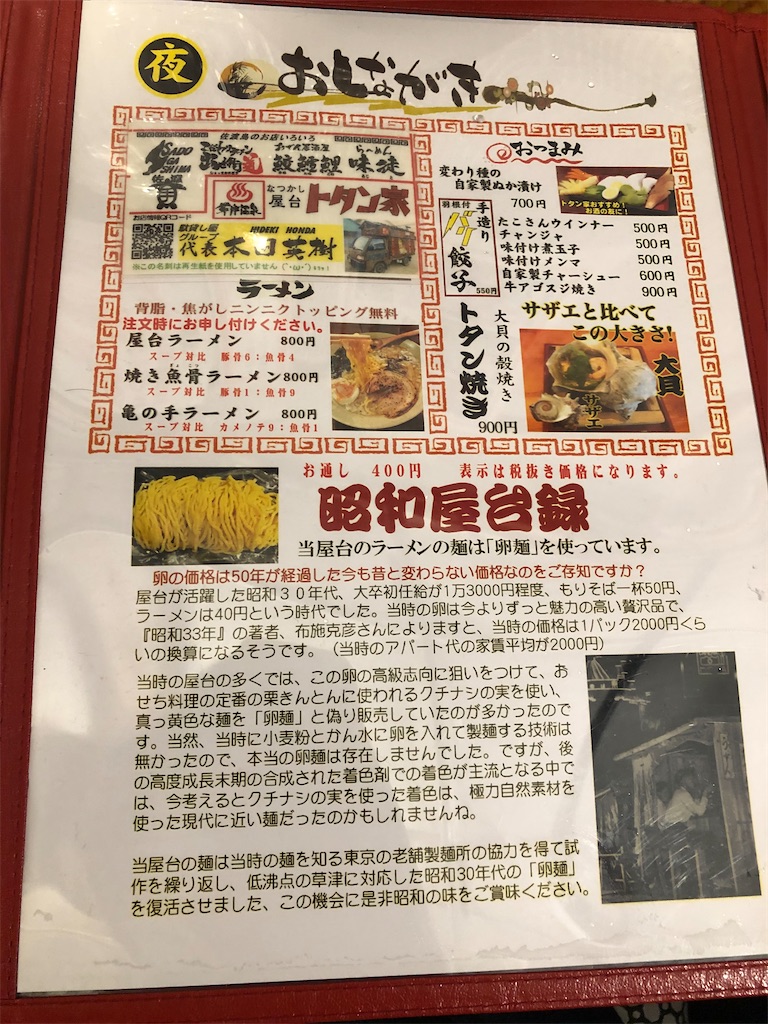 夜
おしながき
佐渡島のお店いろいろ
SADO
GA
SHIMA
らーめん
味徒
草津温泉
なつかし
屋台 トタン家
お店情報QRコード
駄貸し屋
グループ
HIDEKI HONDA
代表 本田英樹
※この名刺は再生紙を使用していません
ラーメン
背脂・焦がしニンニクトッピング無料
注文時にお申し付けください。
屋台ラーメン 800円
スープ対比 豚骨6:魚骨4
焼き魚骨ラーメン 800円
スープ対比 豚骨1:魚骨9
亀の手ラーメン 800円
スープ対比 カメノテ9:魚骨1
おつまみ
変わり種の
自家製ぬか漬け
700円
トタン家おすすめ!
お酒の友に!
羽根付
手造り
バリ餃子
550円
たこさんウインナー 500円
チャンジャ 500円
味付け煮玉子 500円
味付けメンマ 500円
自家製チャーシュー 600円
牛アゴスジ焼き 900円
大貝の殻焼き
トタン焼き
900円
サザエと比べて
この大きさ!
大貝
サザエ
お通し 400円 表示は税抜き価格になります。
昭和屋台録
当屋台のラーメンの麺は「卵麺」を使っています。
卵の価格は50年が経過した今も昔と変わらない価格なのをご存知ですか?
屋台が活躍した昭和30年代、大卒初任給が1万3000円程度、もりそば一杯50円、
ラーメンは40円という時代でした。当時の卵は今よりずっと魅力の高い贅沢品で、
『昭和33年』の著者、布施克彦さんによりますと、当時の価格は1パック2000円くら
いの換算になるそうです。(当時のアパート代の家賃平均が2000円)
当時の屋台の多くでは、この卵の高級志向に狙いをつけて、お
せち料理の定番の栗きんとんに使われるクチナシの実を使い、
真っ黄色な麺を「卵麺」と偽り販売していたのが多かったので
す。当然、当時に小麦粉とかん水に卵を入れて製麺する技術は
無かったので、本当の卵麺は存在しませんでした。ですが、後
の高度成長末期の合成された着色剤での着色が主流となる中で
は、今考えるとクチナシの実を使った着色は、極力自然素材を
使った現代に近い麺だったのかもしれませんね。
当屋台の麺は当時の麺を知る東京の老舗製麺所の協力を得て試
作を繰り返し、低沸点の草津に対応した昭和30年代の「卵麺」
を復活させました、この機会に是非昭和の味をご賞味ください。